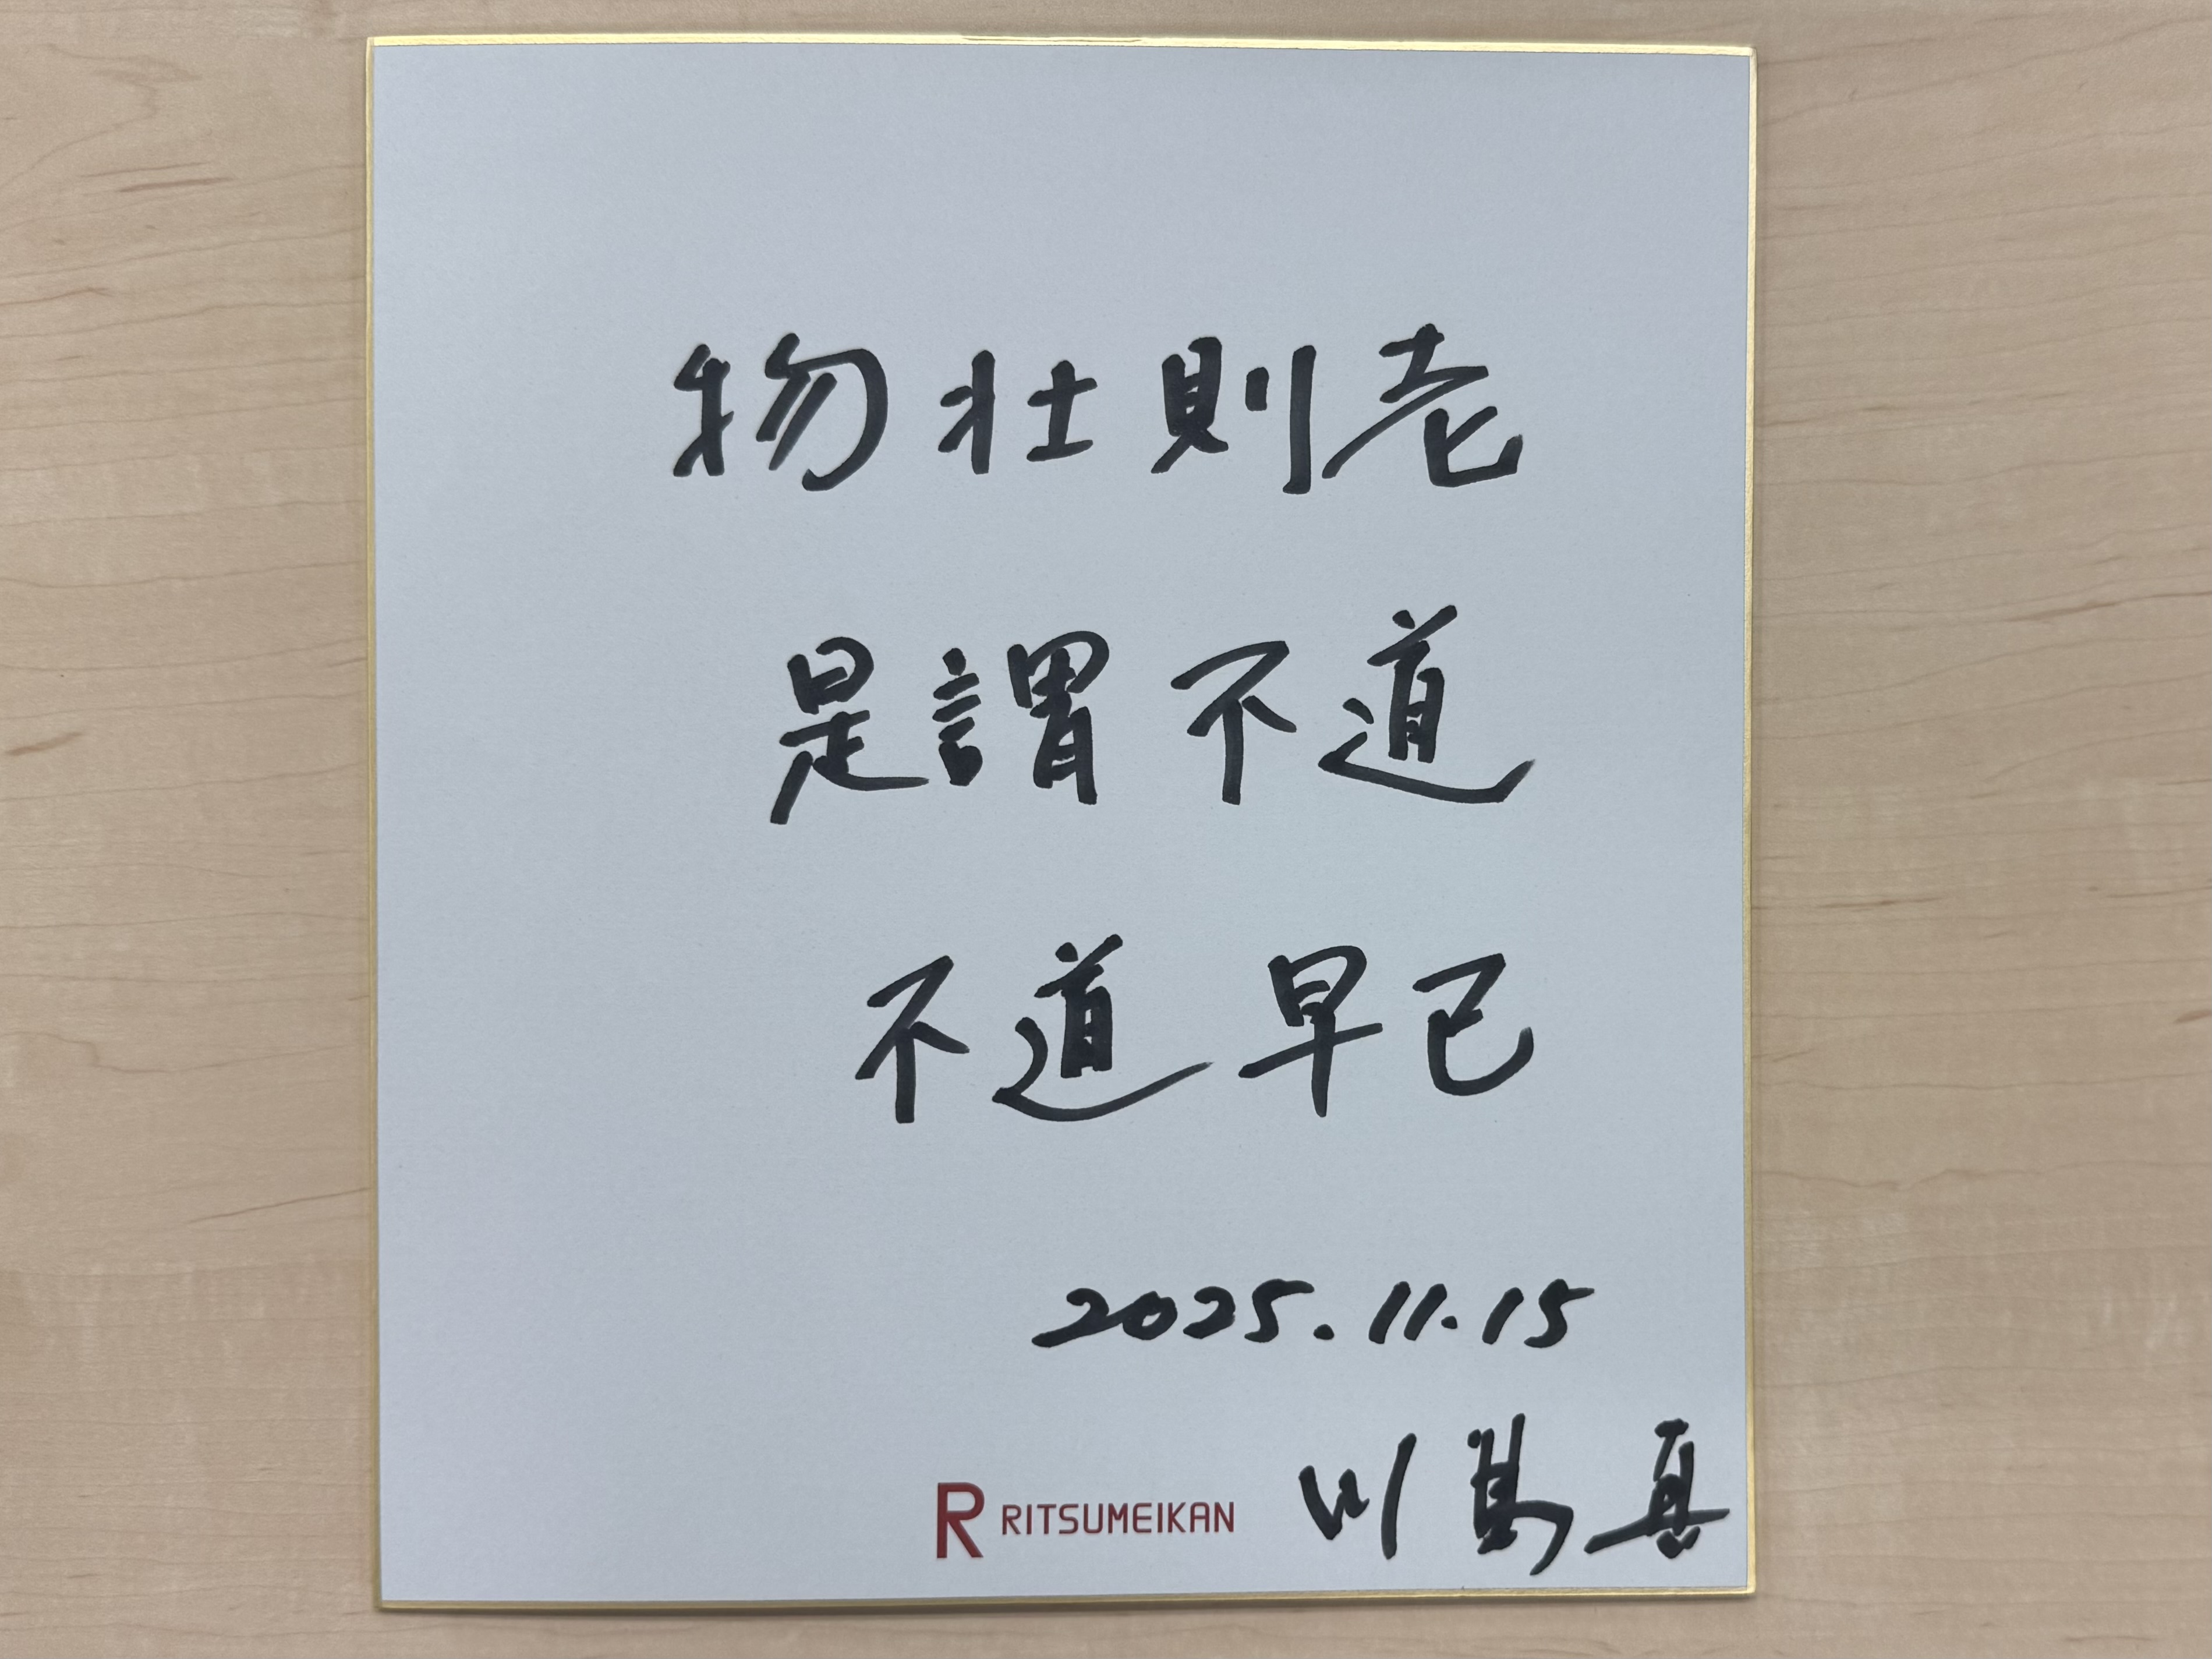 物壮則老
是謂不道
不道早已
2025.11.15
R RITSUMEIKAN
川島真